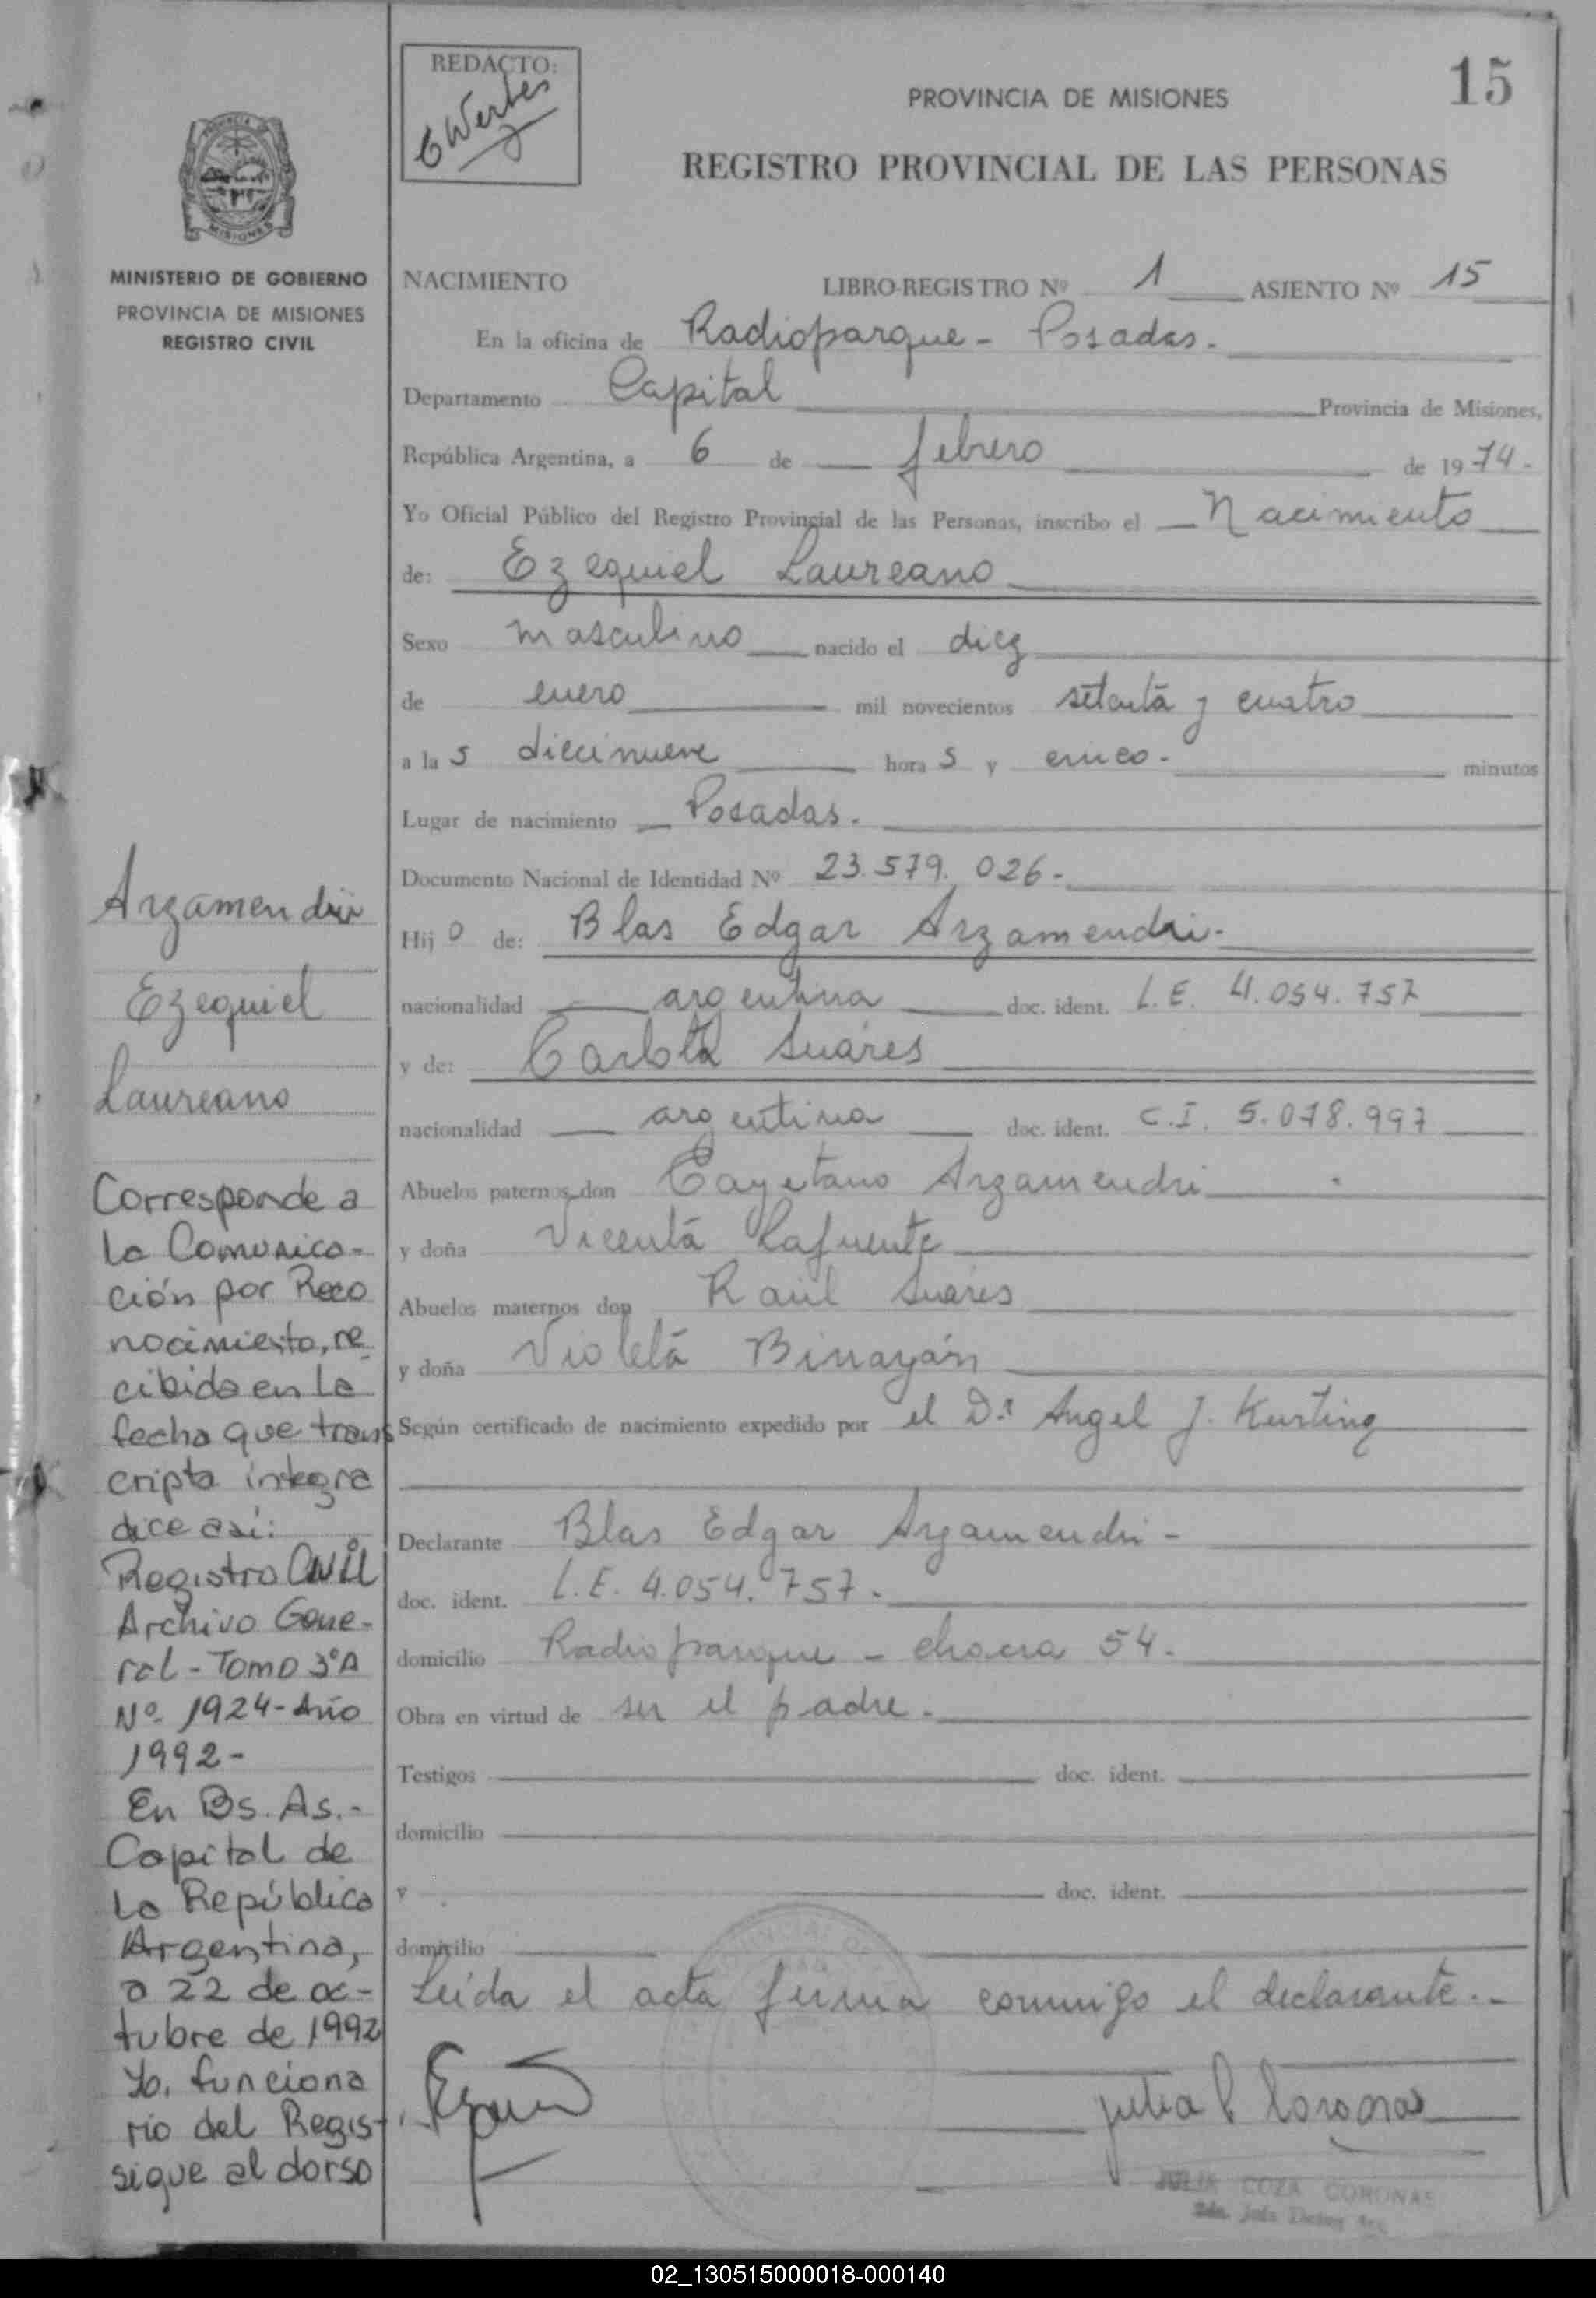 REDACTO:
PROVINCIA DE MISIONES
15
REGISTRO PROVINCIAL DE LAS PERSONAS
PROVINCIA DE
MISIONES
MINISTERIO DE GOBIERNO
PROVINCIA DE MISIONES
REGISTRO CIVIL
NACIMIENTO LIBRO-REGISTRO Nº 1 ASIENTO Nº 15
En la oficina de Radioparque - Posadas.
Departamento Capital Provincia de Misiones,
República Argentina, a 6 de febrero de 1974.
Yo Oficial Público del Registro Provincial de las Personas, inscribo el Nacimiento
de: Ezequiel Laureano
Sexo masculino nacido el diez
de enero mil novecientos setenta y cuatro
a las diecinueve horas y cinco. minutos
Lugar de nacimiento Posadas.
Documento Nacional de Identidad Nº 23.579.026-
Hijo de: Blas Edgar Arzamendi.
nacionalidad argentina doc. ident. L.E. 4.054.757
y de: Carlota Suáres
nacionalidad argentina doc. ident. C.I. 5.078.997
Abuelos paternos don Cayetano Arzamendi
y doña Vicenta Lafuente
Abuelos maternos don Raúl Suáres
y doña Violeta Binayán
Según certificado de nacimiento expedido por el Dr Angel J.
Declarante Blas Edgar Arzamendi -
doc. ident. L.E. 4.054.757.
domicilio Radioparque - chacra 54.
Obra en virtud de ser el padre.
Testigos doc. ident.
domicilio
y doc. ident.
domicilio
Leída el acta firma conmigo el declarante..
Julia C Coronas
JULIA COZA CORONAS
Arzamendi
Ezequiel
Laureano
Corresponde a
la Comunica-
ción por Reco
nocimiento, re
cibida en la
fecha que trans
cripta íntegra
dice así:
Registro Civil
Archivo Gene-
ral - Tomo 3ºA
Nº 1924 - Año
1992 -
En Bs. As.-
Capital de
la República
Argentina,
a 22 de oc-
tubre de 1992
Yo, funciona
rio del Regis-
sigue al dorso
02_130515000018-000140